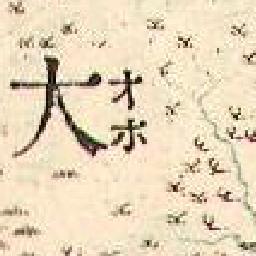 大
オホ